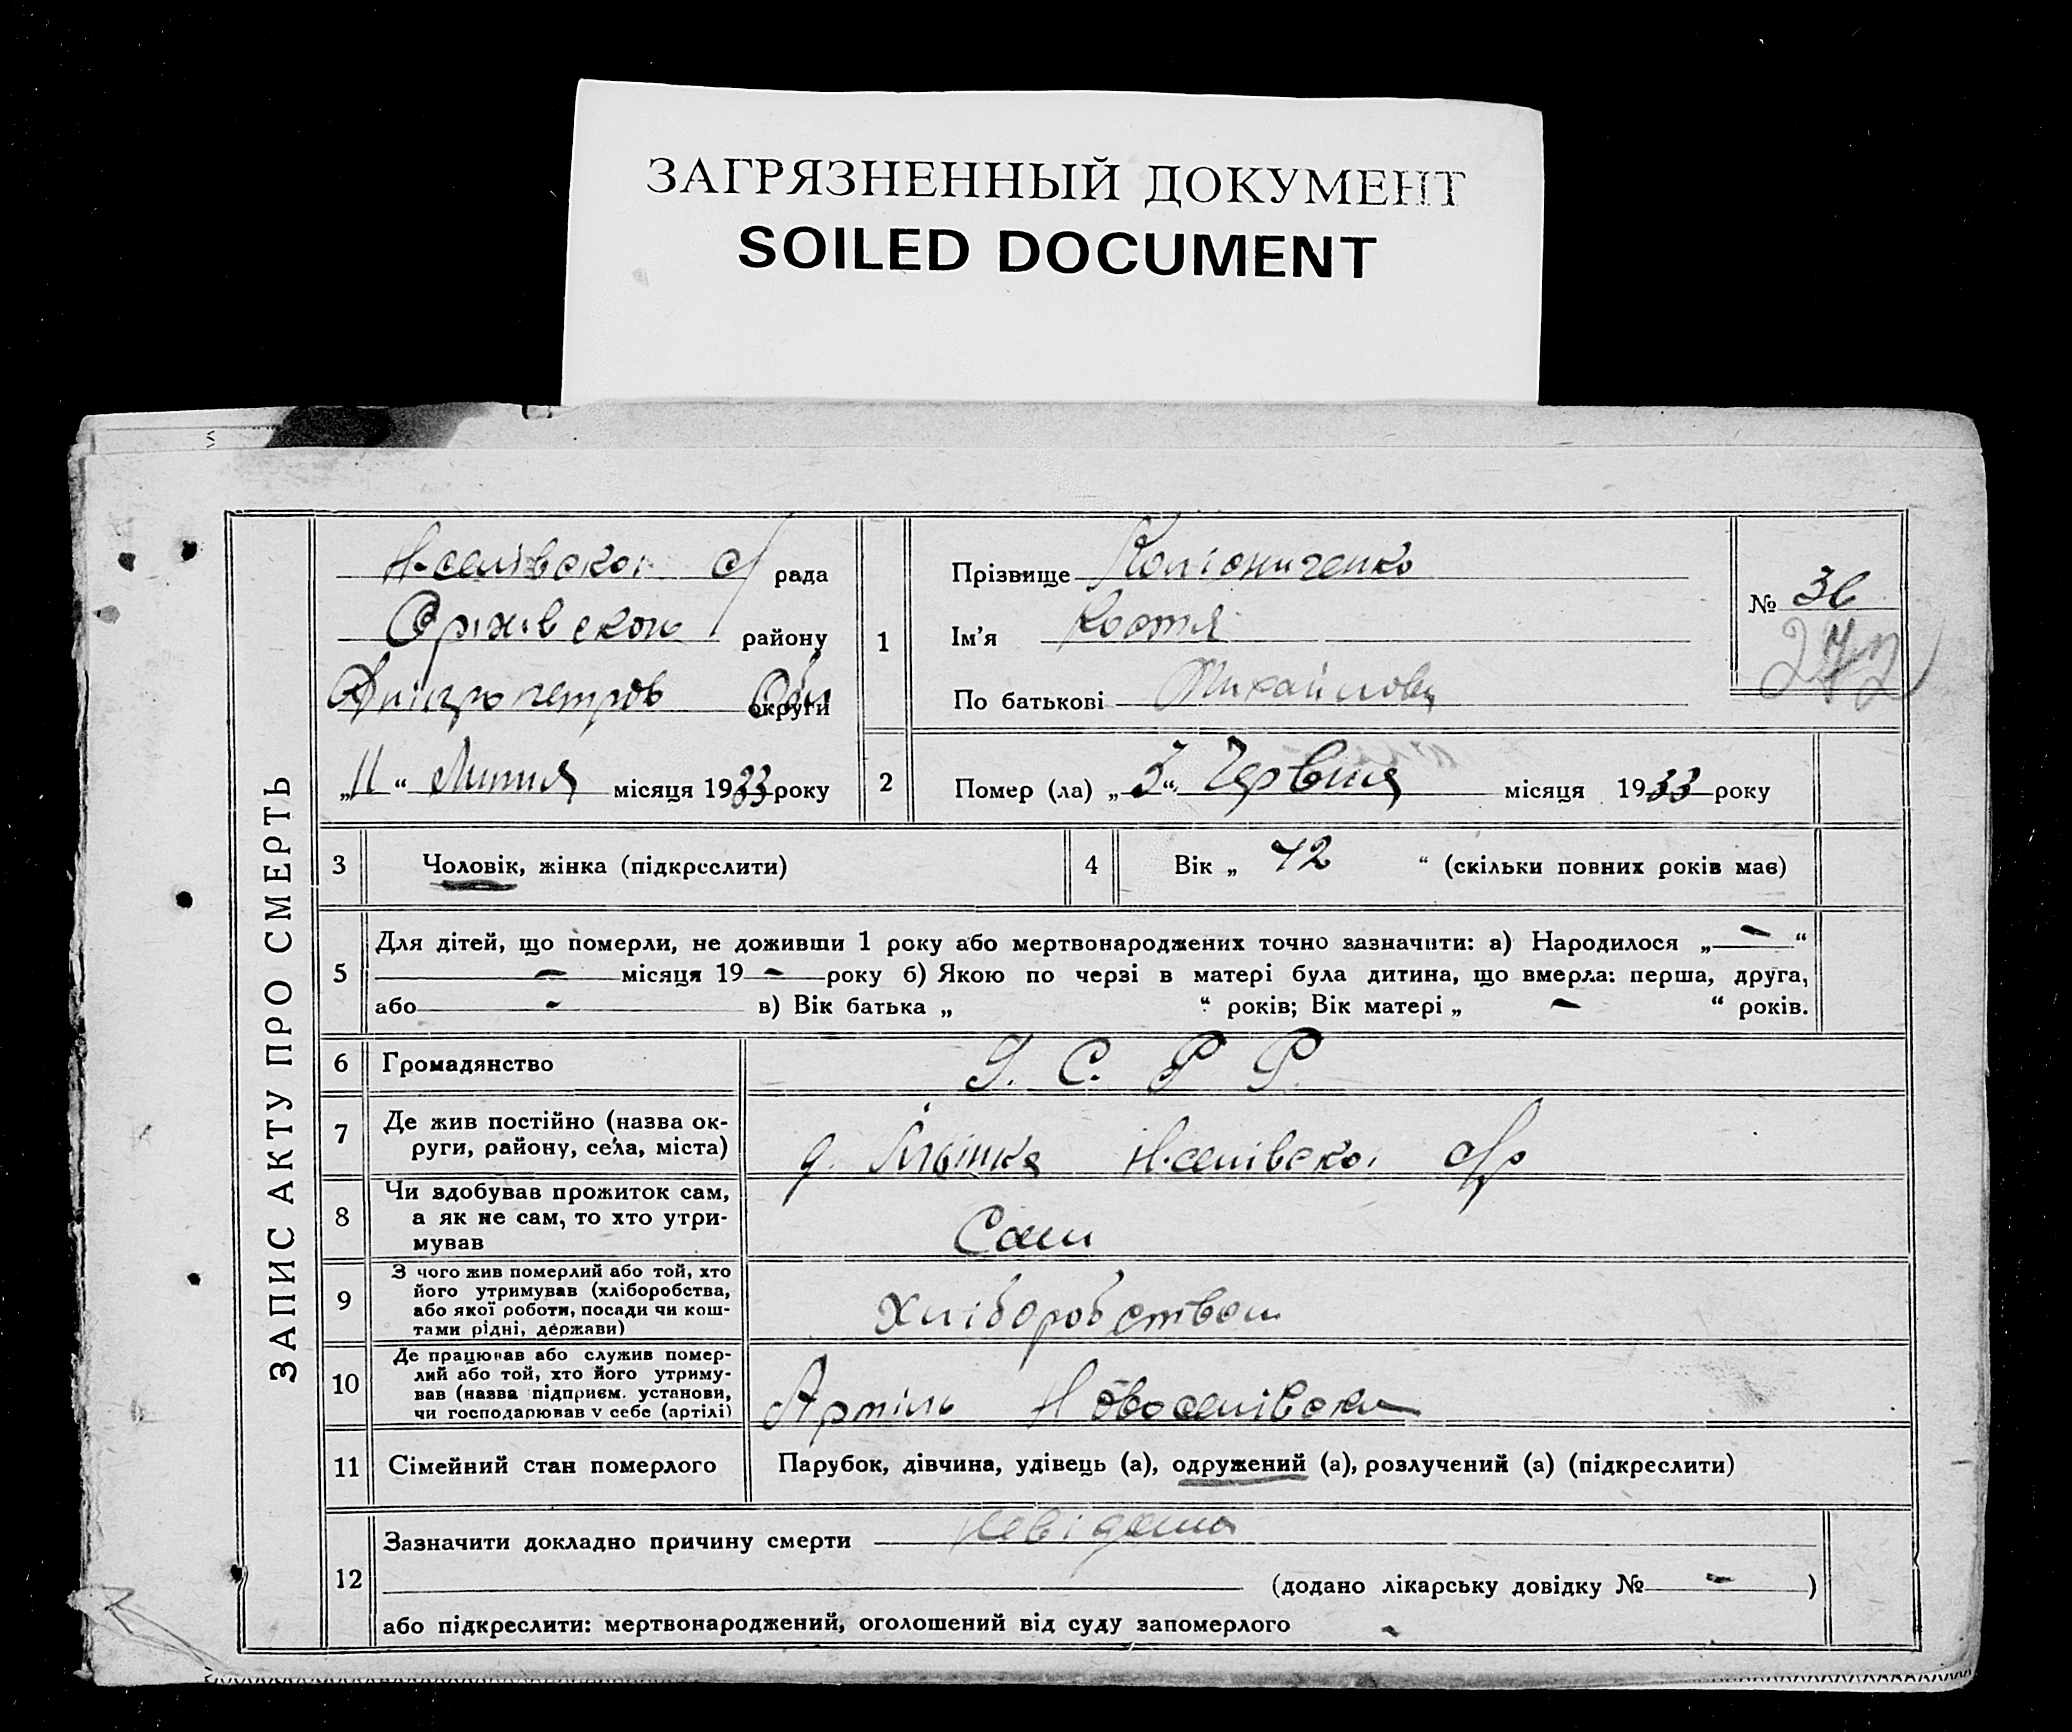 ЗАГРЯЗНЕННЫЙ ДОКУМЕНТ
SOILED DOCUMENT
ЗАПИС АКТУ ПРО СМЕРТЬ
Н-селівської с/ рада
Оріхівського району
Дніпропетров Обл округи
„11“ Липня місяця 1933 року
1
Прізвище
Ім'я Костя
По батькові Михайлович
№ 36
242
2 Помер (ла) „3“ Червня місяця 1933 року
3 Чоловік, жінка (підкреслити)
4 Вік „ 42 “ (скільки повних років має)
5 Для дітей, що померли, не доживши 1 року або мертвонароджених точно зазначити: а) Народилося „ - “
- місяця 19 - року б) Якою по черзі в матері була дитина, що вмерла: перша, друга,
або - в) Вік батька „ “ років; Вік матері „ - “ років.
6 Громадянство У. С. Р Р.
7 Де жив постійно (назва ок-
руги, району, села, міста) Н-селівської с/р
8 Чи здобував прожиток сам,
а як не сам, то хто утри-
мував Сам
9 З чого жив померлий або той, хто
його утримував (хліборобства,
або якої роботи, посади чи кош-
тами рідні, держави) Хліборобством
10 Де працював або служив помер-
лий або той, хто його утриму-
вав (назва підприєм. установи,
чи господарював у себе (артілі) Артіль Новоселівська
11 Сімейний стан померлого Парубок, дівчина, удівець (а), одружений (а), розлучений (а) (підкреслити)
12 Зазначити докладно причину смерти невідома
(додано лікарську довідку № - )
або підкреслити: мертвонароджений, оголошений від суду запомерлого -